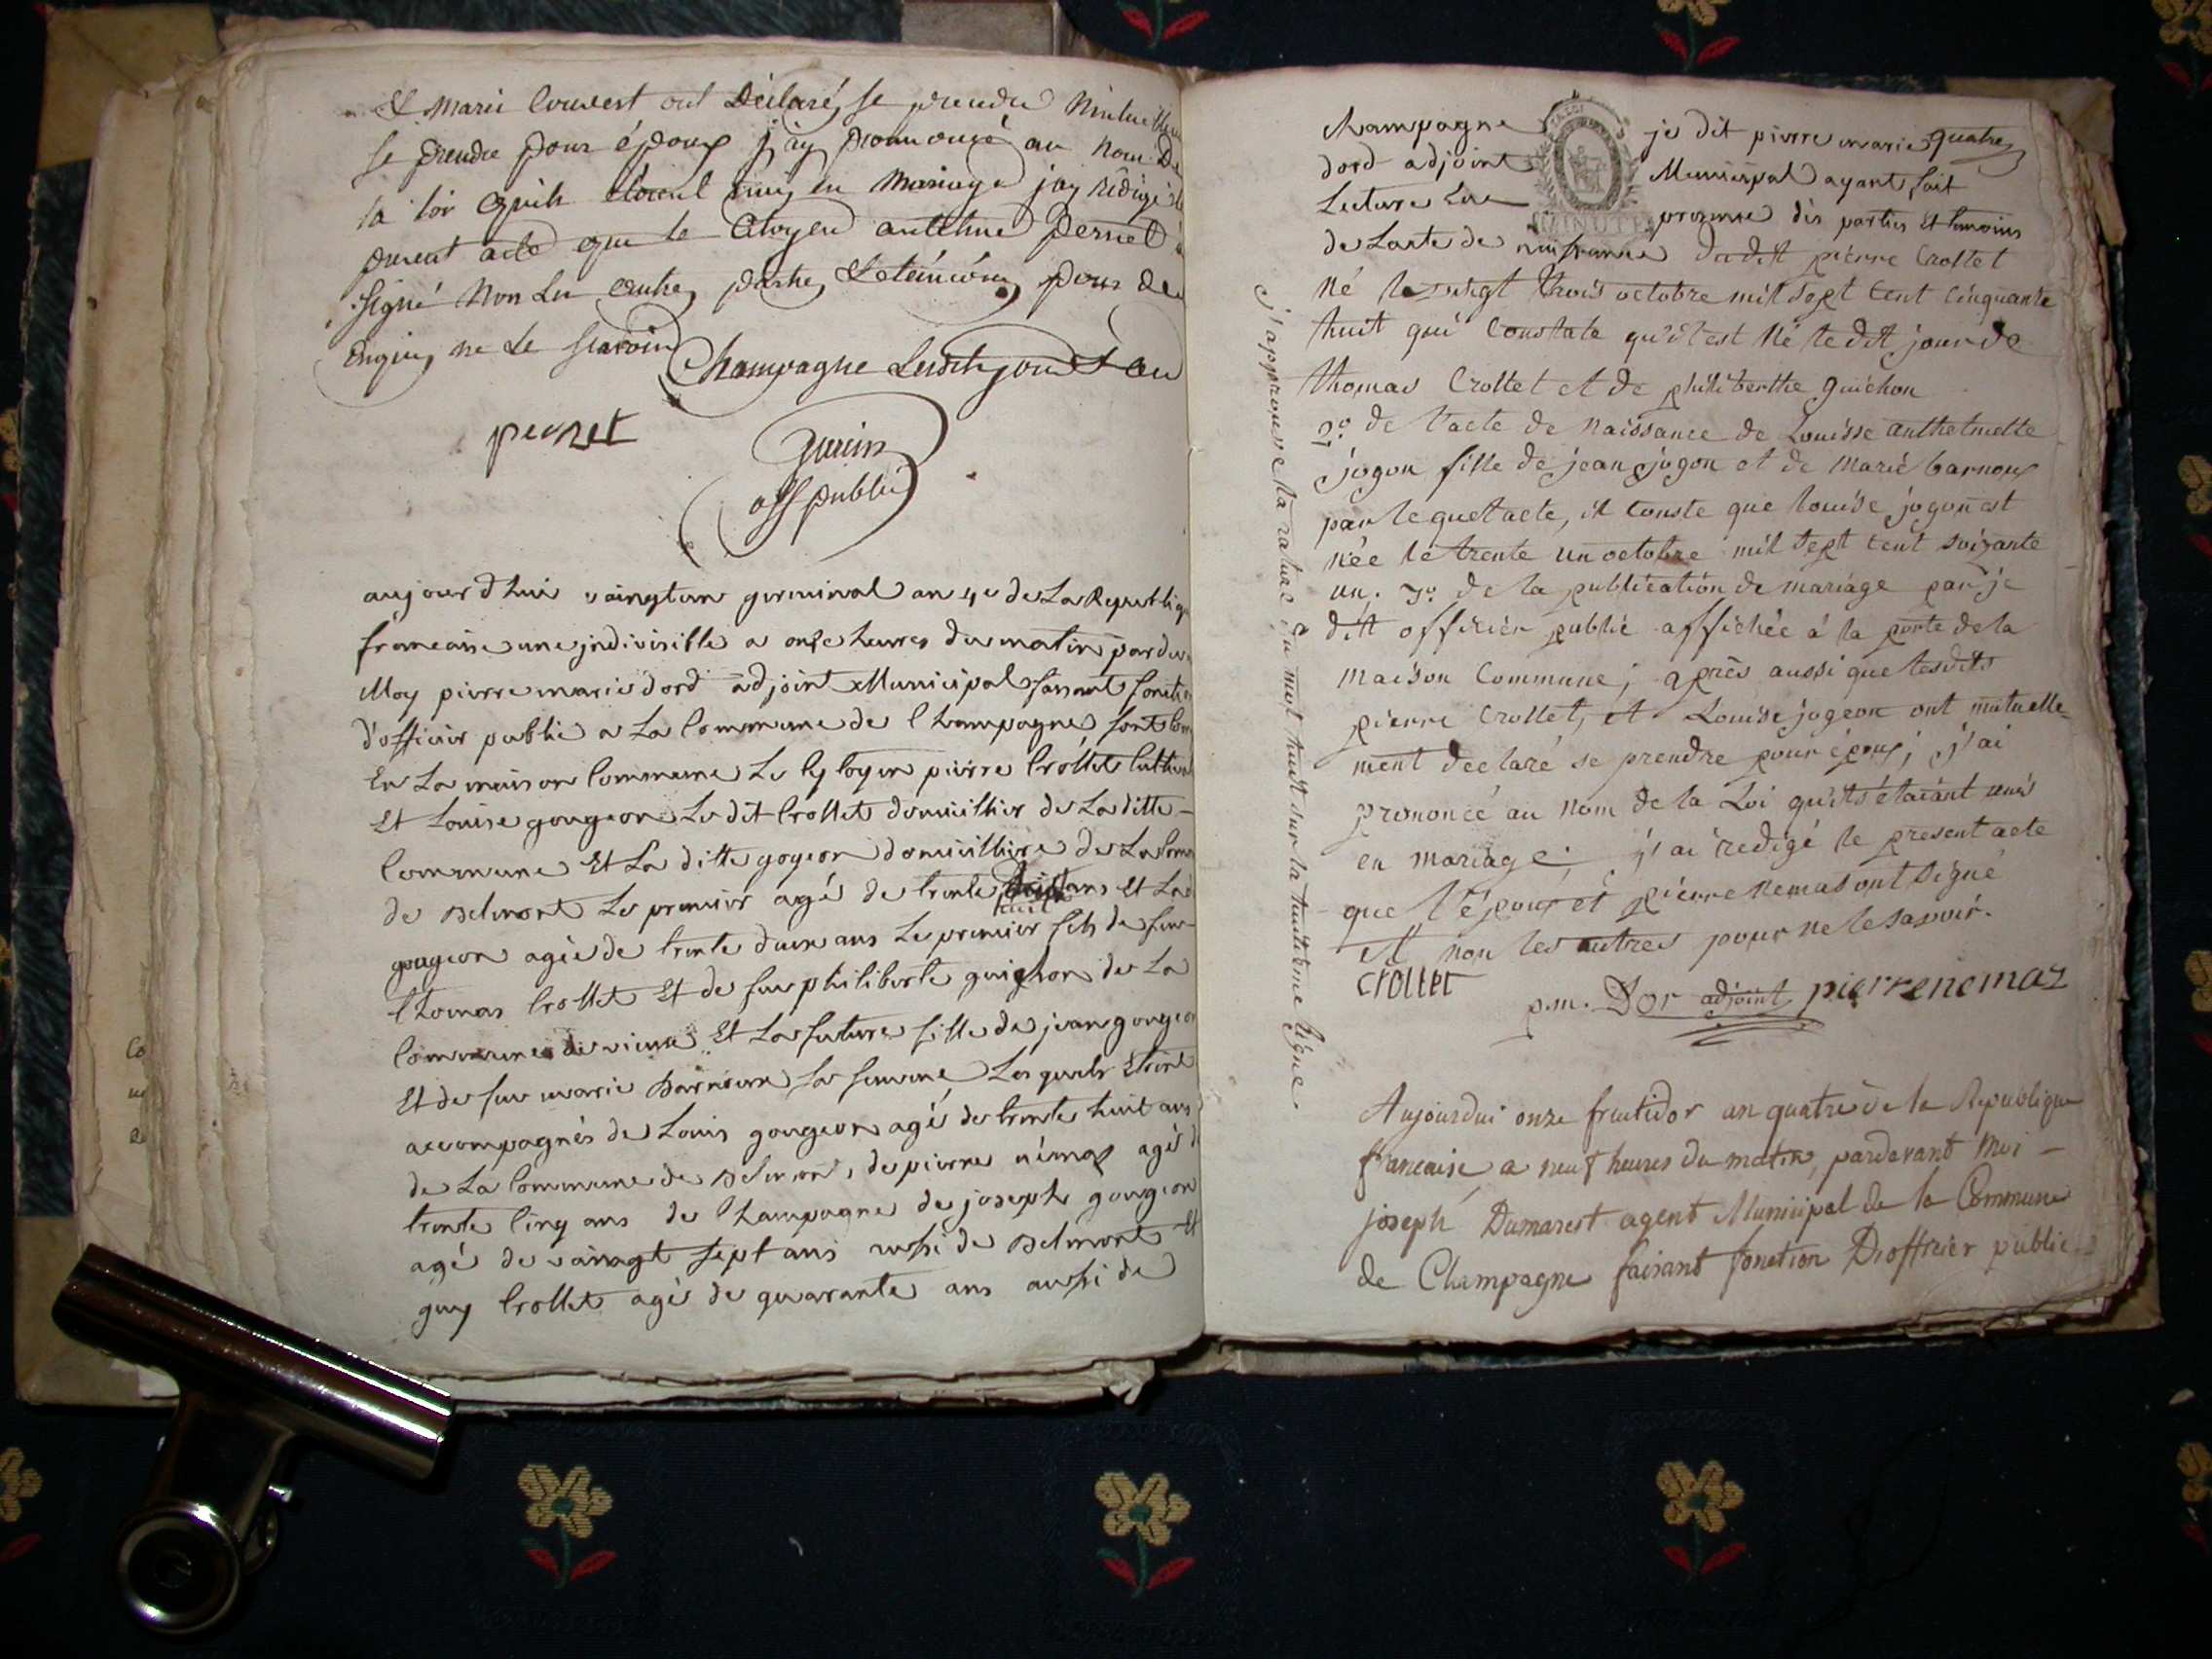 Et Marie Couvert ont Déclaré, se prendre Mutuellem
se prendre pour époux j'ay prononcé au nom De
la loi quils étoient unis en Mariage j'ay rédigé le
present acte que le Citoyen anthelme Perret à
signé Non Les autres parties, Et témoins, pour de
Enquis, ne Le scavoir Champagne Lesdits jour Et an
perret
Guerin
off public
aujourdhui vaingtun germinal an 4e de La Republiqu
francaise une jndivisible a onze heures du matin pardev
Moy pierre marie dord adjoint Municipal faisant fonction
d'officier public a La Commune de Champagne sont
En La maison Commune Le Cytoyen pierre Crollet
Et Louise gougeon Le dit Crollet domicillier de La ditte
Commune Et La ditte gogeon domicilliere de La Comm
de Belmont Le premier agé de trente huit ans Et La d
gougeon agée de trente deux ans Le premier fils de feu
thomas Crollet Et de feu philiberte guichon de La
Commune de vieux Et La future fille de jean gougeon
Et de feu marie Barnoux sa femme Les quels Etoint
accompagnés de Louis gougeon agé de trente huit ans
de La Commune de Belmont, de pierre némoz agé d
trente Cinq ans de Champagne de joseph gougeon
agé de vaingt sept ans aussi de Belmont Et
guy Crollet agé de quarante ans aussi de
Champagne je dit pierre marie quatre
dord adjoint Municipal ayant fait
Lecture En presence des parties Et temoins
MINUTE
de Lacte de naissance dudit pierre Crollet
né le vingt trois octobre mil sept cent cinquante
huit qui Constate qu'il est né le dit jour de
thomas Crollet et de philiberthe guichon
2o de l'acte de naissance de Louisse anthelmette
jogon fille de jean jogon et de Marie barnoux
par lequel acte, il conste que louise jogon est
née le trente un octobre mil sept cent soixante
un. 3o. de la publication de mariage par je
dit officier public affichée à la porte de la
maison Commune; après aussi que lesdits
pierre Crollet, et Louise jogeon ont mutuelle-
ment declaré se prendre pour époux; j'ai
prononcé au nom de la Loi qu'ils étaient unis
en mariage; j'ai redigé le present acte
que l'époux et pierre nemas ont signé
et non les autres pour ne le savoir.
crollet p.m. Dor adjoint pierre nemaz
j'approuve la rature du mot huit sur la huitieme ligne
Aujourdui onze fructidor an quatre de la Republique
francaise a neuf heures du matin, pardevant Moi -
joseph Dumarest agent Municipal de la Commune
de Champagne faisant fonction D'officier public